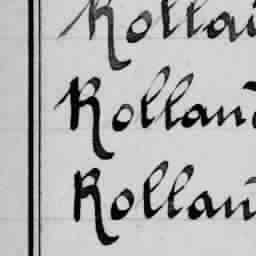 Rollan
Rolland
Rollan